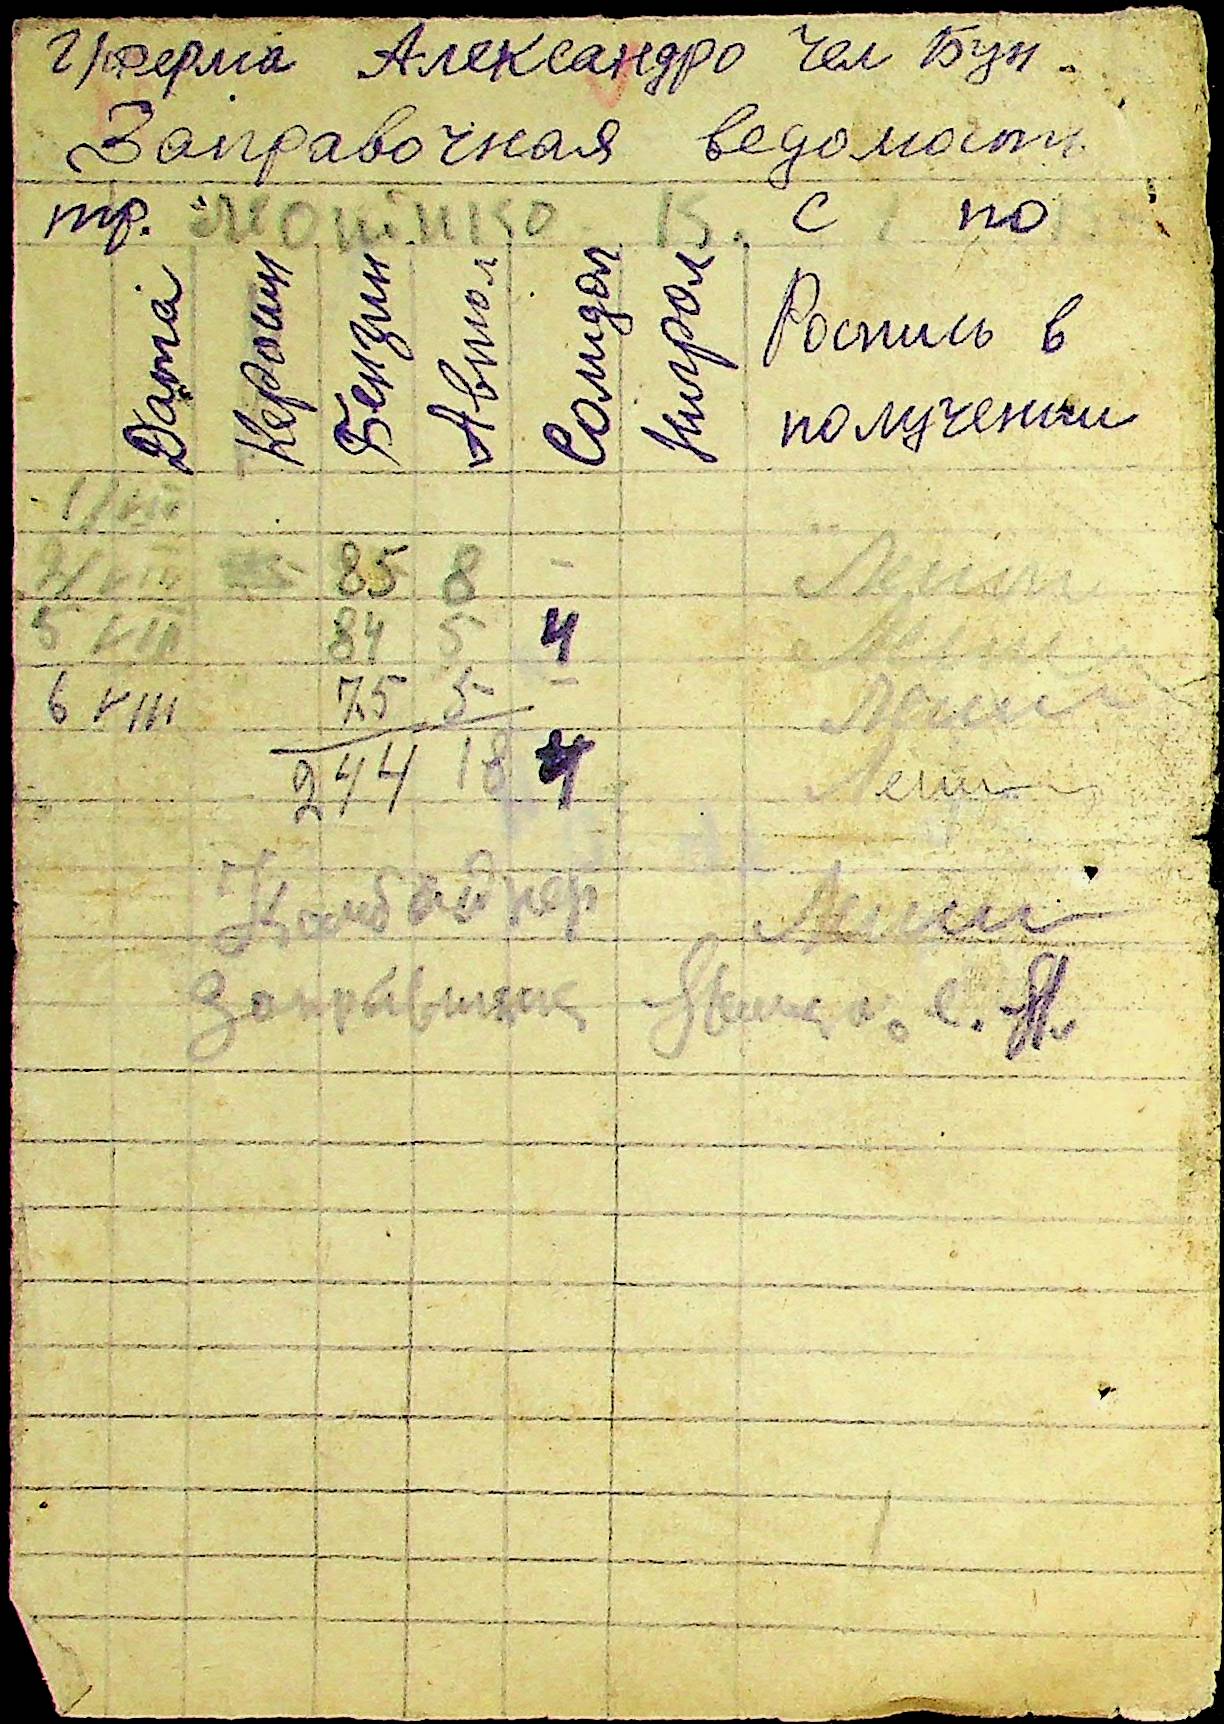 ферма Александро Чел Бун.
Заправочная ведомость
тр. К. с 1 по
Дата Керосин Бензин Автол Солидол Нигрол Роспись в
получении
1/VIII
2/VIII 85 8 -
5 VIII 84 5 4
6 VIII 75 5 -
244 18 4
Комбайнер
Заправщик